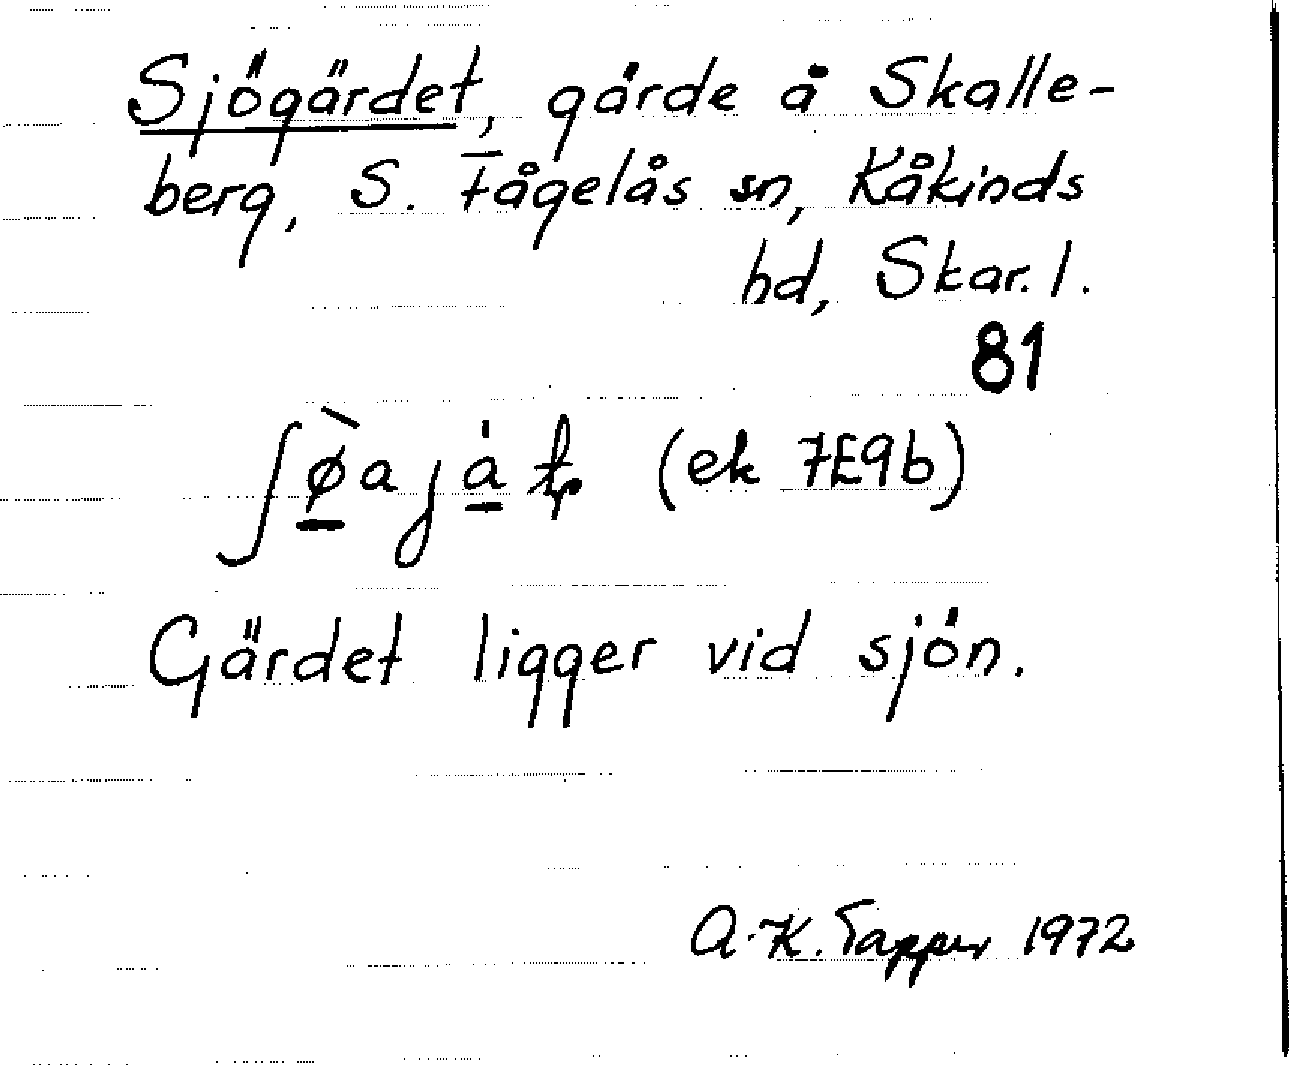 Sjögärdet, gärde å Skalle-
berg, S. Fågelås sn, Kåkinds
hd, Skar. l.
81
(ek 7E9b)
Gärdet ligger vid sjön.
A-K. Tapper 1972